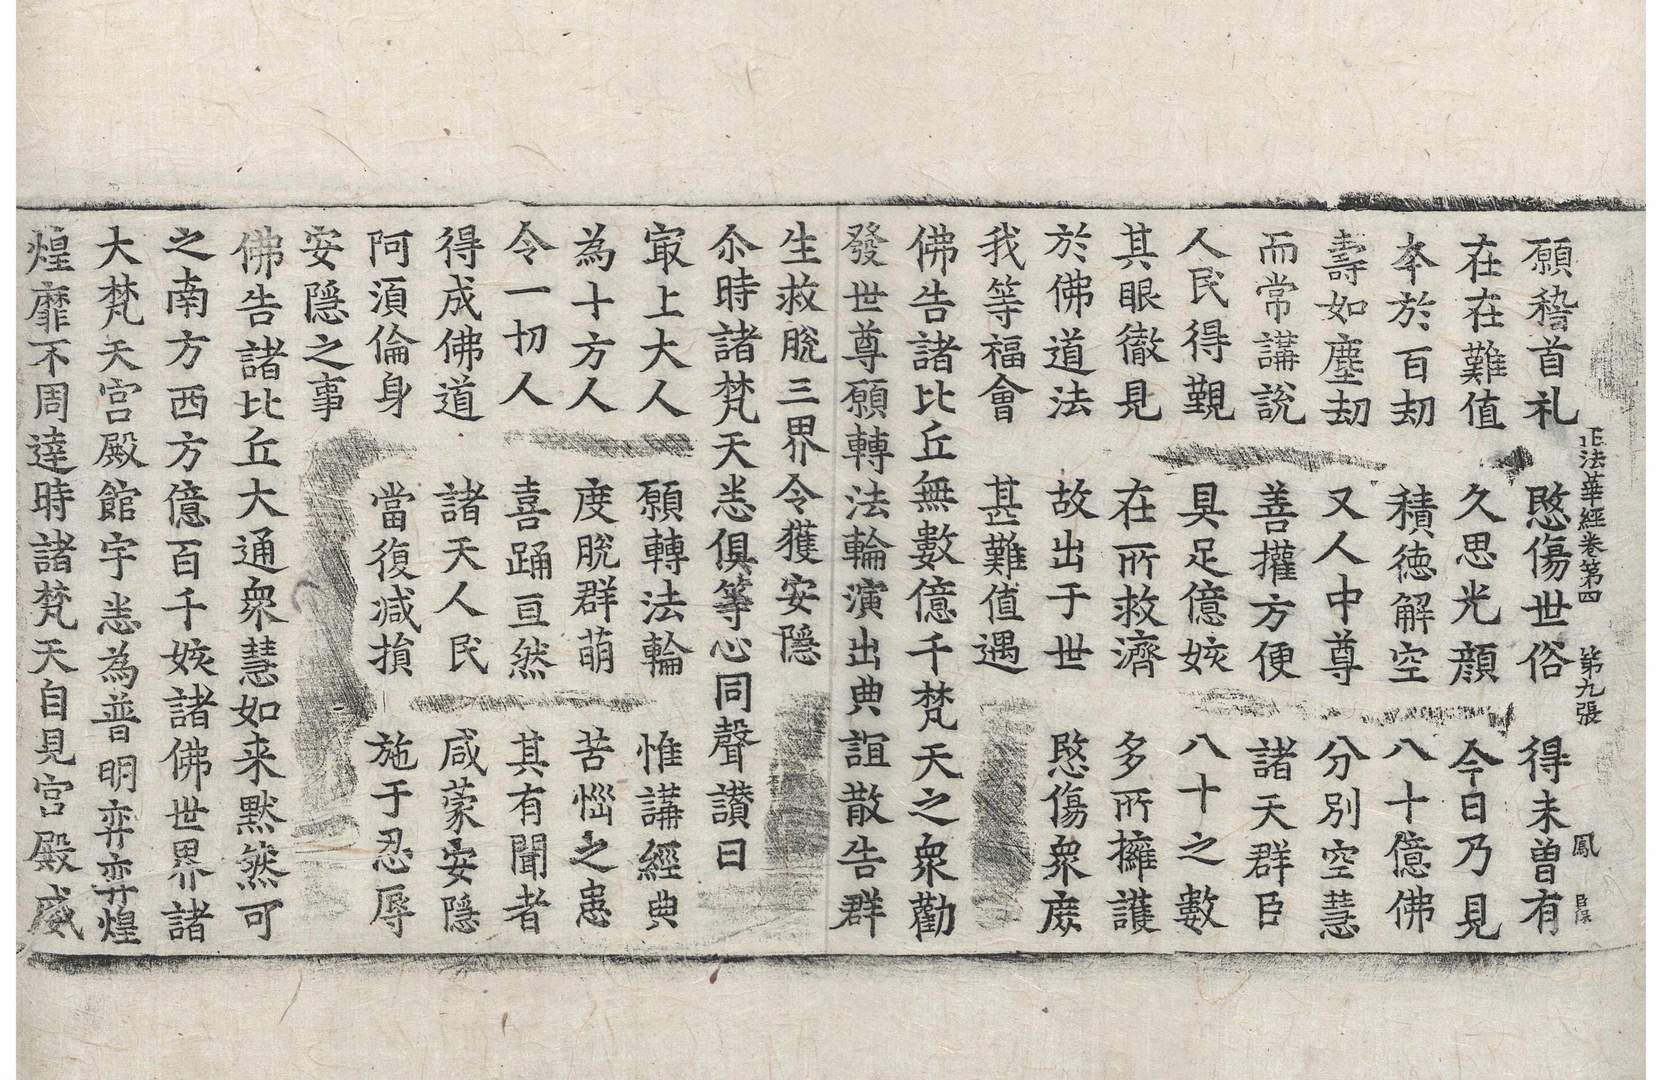 正法華經卷第四 第九張 鳳
願稽首礼 愍傷世俗 得未曾有
在在難值 久思光顔 今日乃見
本於百劫 積徳解空 八十億佛
壽如塵劫 又人中尊 分別空慧
而常講說 善攉方便 諸天群臣
人民得覲 具足億姟 八十之數
其眼徹見 在所救濟 多所擁護
於佛道法 故出于世 愍傷衆庶
我等福會 甚難值遇
佛告諸比丘無數億千梵天之衆勸
發世尊願轉法輪演出典誼散告群
生救脫三界令獲安隱
尒時諸梵天恙俱等心同聲讃曰
㝡上大人 願轉法輪 惟講經典
為十方人 度脫群萌 苦惱之患
令一切人 喜踊亘然 其有聞者
得成佛道 諸天人民 咸蒙安隱
阿湏倫身 當復減損 施于忍辱
安隱之事
佛告諸比丘大通衆慧如来黙然可
之南方西方億百千姟諸佛世界諸
大梵天宮殿館宇恙為普明弈弈煌
煌靡不周達時諸梵天自見宮殿威